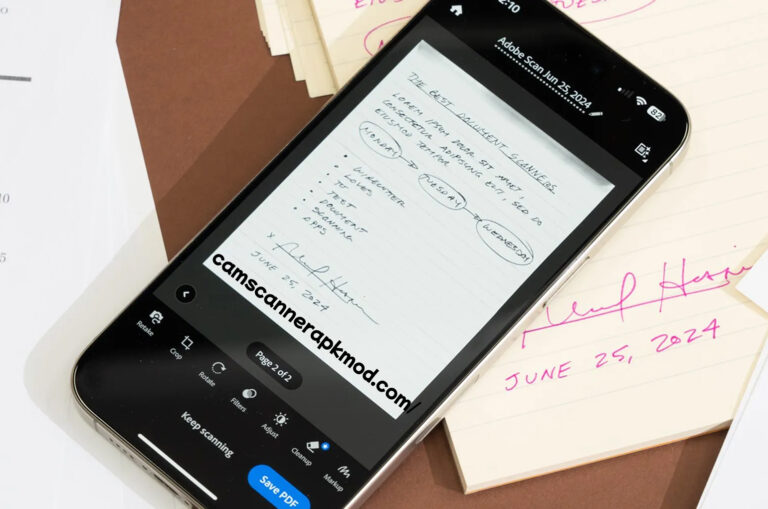 2:10
82
Adobe Scan Jun 25, 2024
THE BEST DOCUMENT SCANNERS
LOREM IPSUM DOLOR SIT AMET,
CONSECTETUR ADIPISCING ELIT, SED DO
EIUSMOD TEMPOR
MONDAY TUESDAY WEDNESDAY
• WIRECUTTER
• LOVES
• TO
• TEST
• DOCUMENT
• SCANNING
• APPS
X
JUNE 25, 2024
camscannerapkmod.com/
Page 2 of 2
Retake
Crop
Rotate
Filters
Adjust
Cleanup
Markup
Keep scanning
Save PDF
JUNE 25, 2024